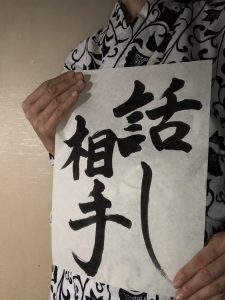 話し
相手